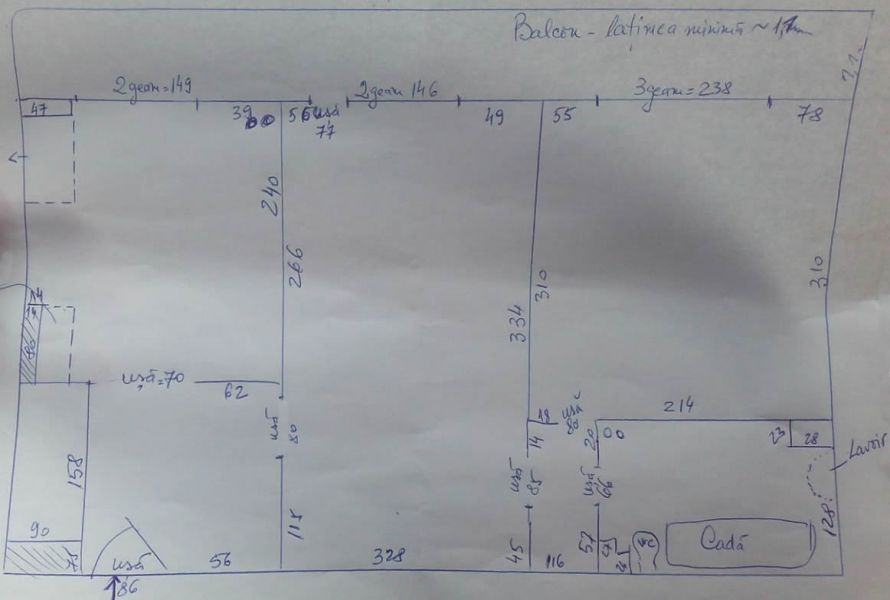 Balcon - lațimea minimă ~ 1,1m
2 geam = 149
2 geam 146
3 geam = 238
47
39
56
ușă
77
49
55
78
240
266
310
334
310
80
ușă = 70
62
ușă
80
18
ușă
214
14
20
23
28
Lavoir
158
ușă
85
ușă
66
128
118
90
78
ușă
86
56
328
45
116
57
27
WC
Cadă